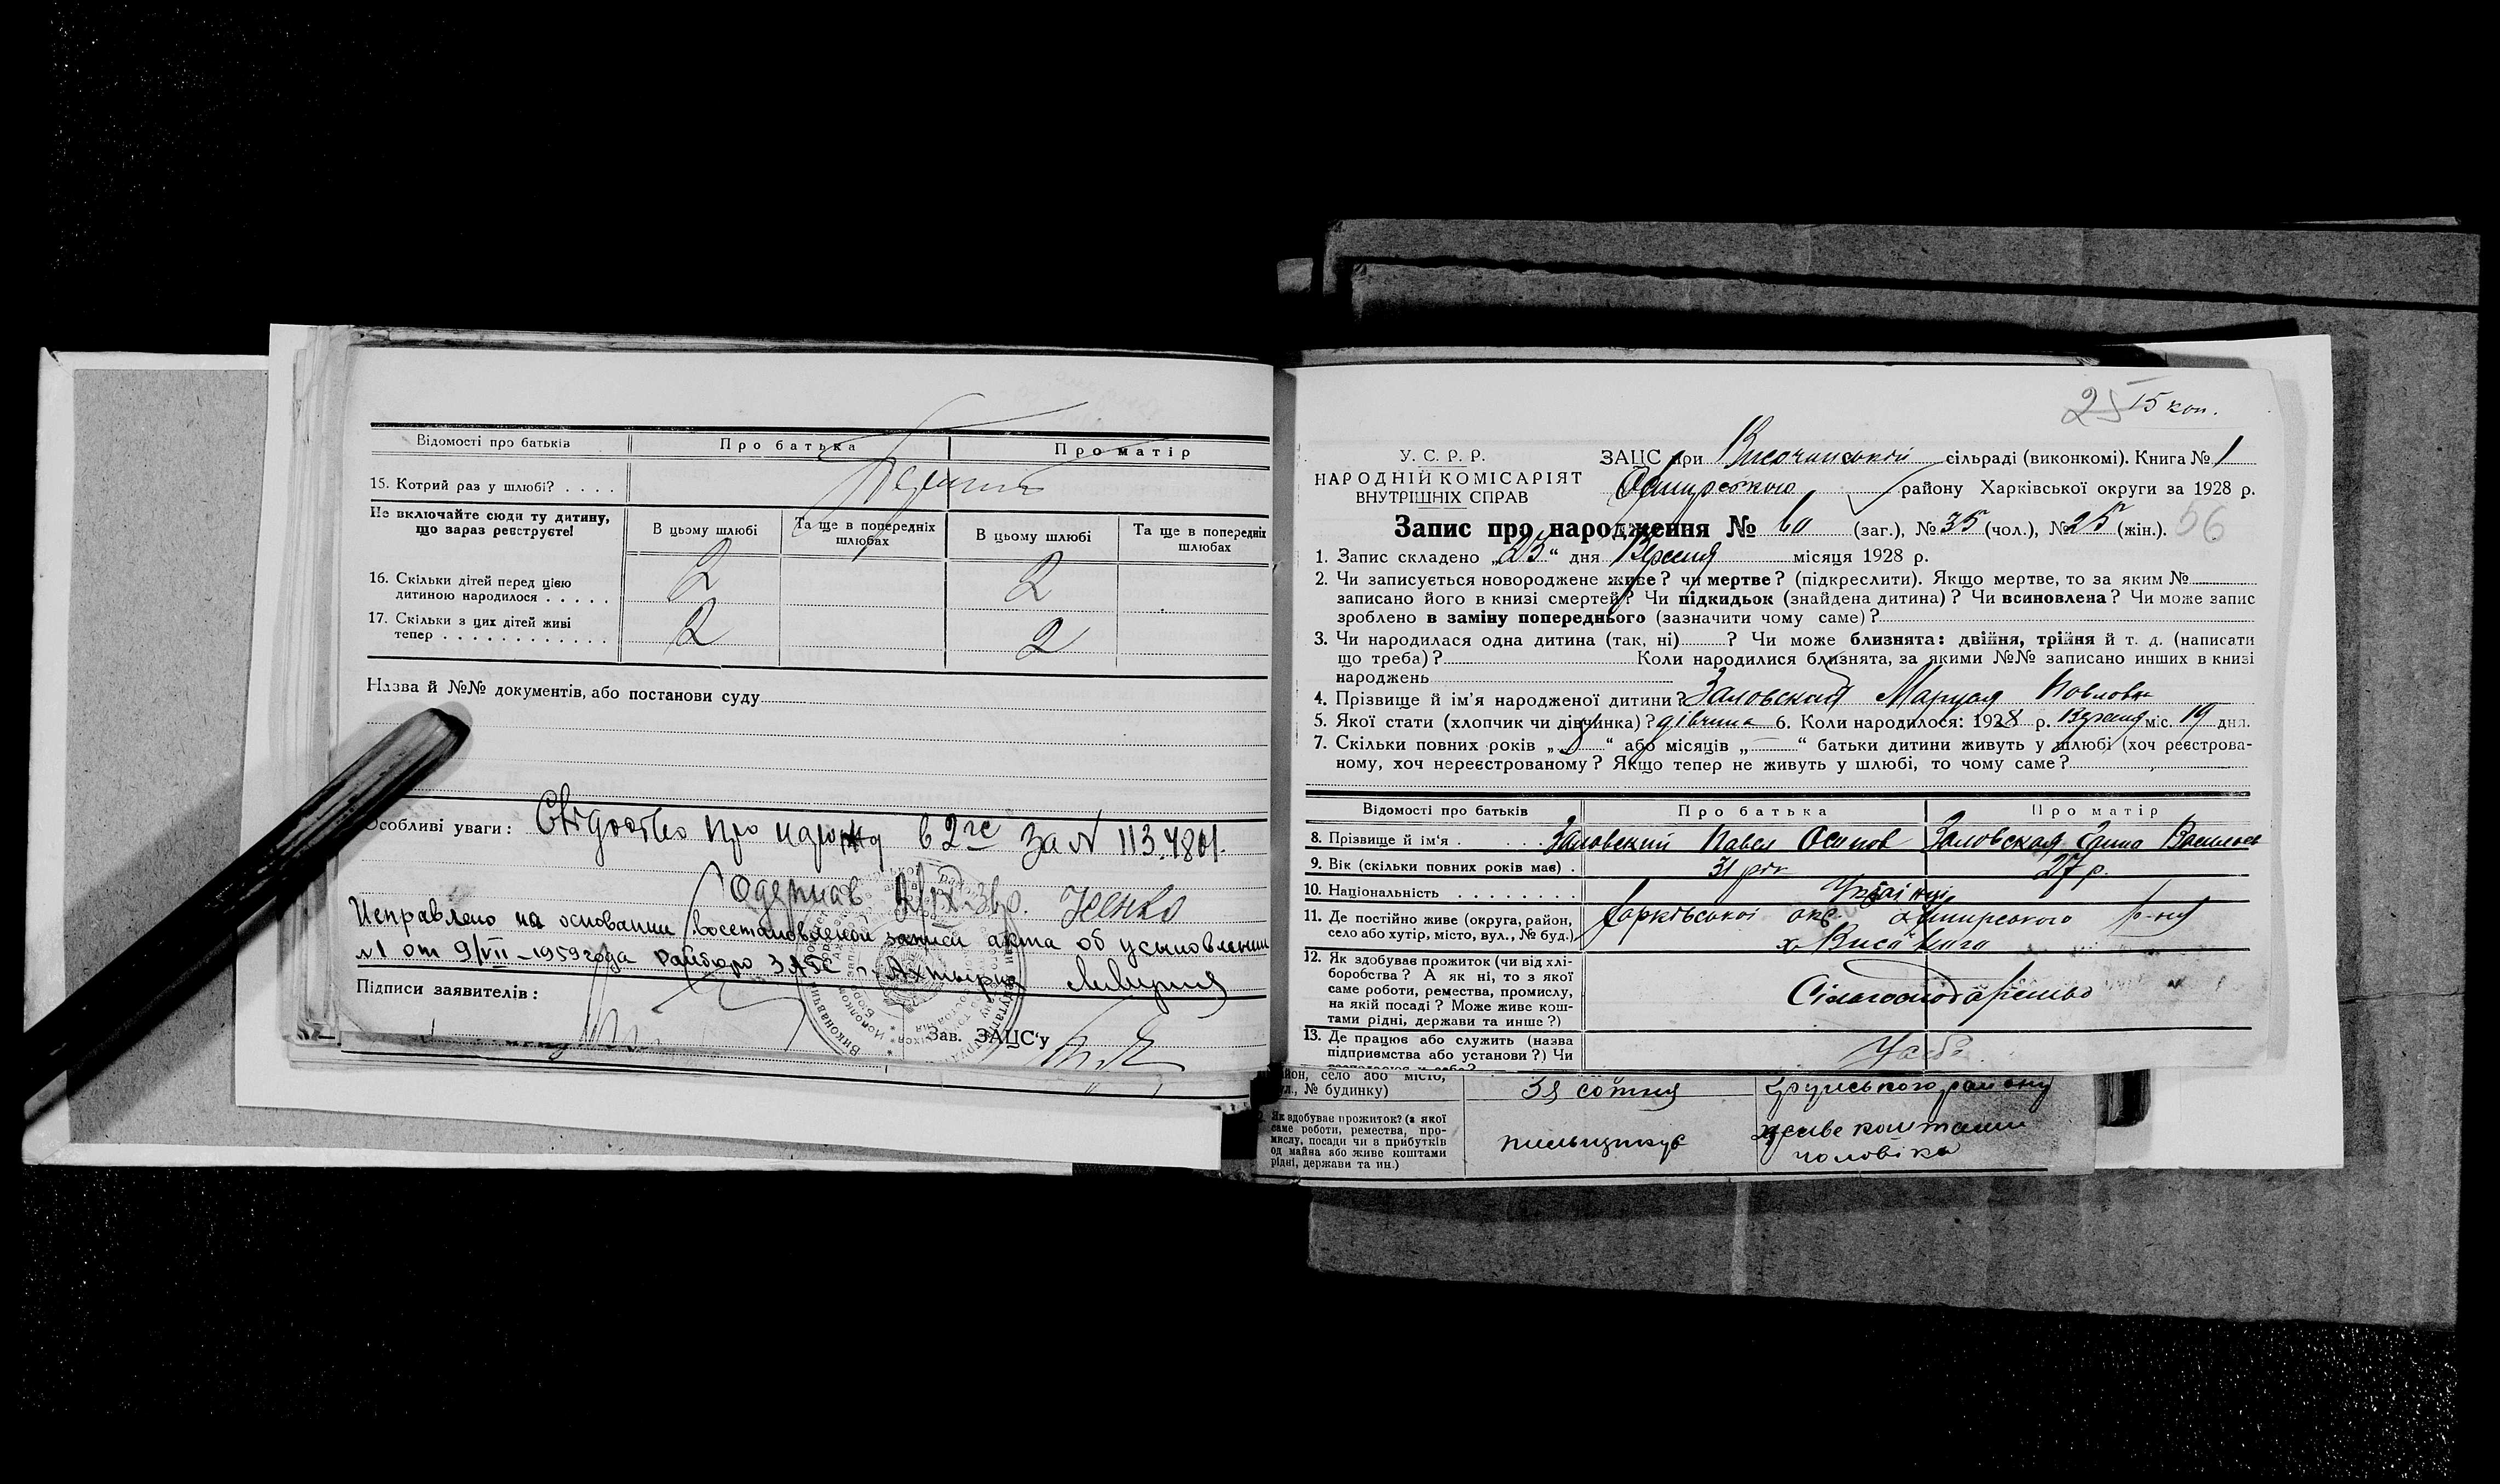 Відомості про батьків Про батька Про матір
15. Котрий раз у шлюбі? . . . .
Не включайте сюди ту дитину,
що зараз реєструєте!
В цьому шлюбі Та ще в попередніх
шлюбах В цьому шлюбі Та ще в попередніх
шлюбах
16. Скільки дітей перед цією
дитиною народилося . . . . . 2 2
17. Скільки з цих дітей живі
тепер . . . . . . . . . . . . 2 2
Назва й №№ документів, або постанови суду
Особливі уваги: Свідоство про народж в 2 за N 113.4801.
Одержав
Исправлено на основании восстановленой записи акта об усыновлении
№1 от 9/VII-1959 года Райбюро ЗАГС г. Ахтырка
Підписи заявителів:
Зав. ЗАЦС'у
25 15 коп.
У. С. Р. Р.
НАРОДНІЙ КОМІСАРІЯТ
ВНУТРІШНІХ СПРАВ
ЗАЦС при Височинської сільраді (виконкомі). Книга № 1
району Харківської округи за 1928 р.
Запис про народження № 60 (заг.), № 35 (чол.), № 25 (жін.). 56
1. Запис складено „25“ дня Вересня місяця 1928 р.
2. Чи записується новороджене живе? чи мертве? (підкреслити). Якщо мертве, то за яким №
записано його в книзі смертей? Чи підкидьок (знайдена дитина)? Чи всиновлена? Чи може запис
зроблено в заміну попереднього (зазначити чому саме)?
3. Чи народилася одна дитина (так, ні) ? Чи може близнята: двійня, трійня й т. д. (написати
що треба)? Коли народилися близнята, за якими №№ записано инших в книзі
народжень
4. Прізвище й ім'я народженої дитини? Заловская МарусяПовловн
5. Якої стати (хлопчик чи дівчинка)? дівчина 6. Коли народилося: 1928 р. Вересня міс. 19 дня.
7. Скільки повних років „ “ або місяців „—“ батьки дитини живуть у шлюбі (хоч реєстрова-
ному, хоч нереєстрованому? Якщо тепер не живуть у шлюбі, то чому саме?
Відомості про батьків Про батька Про матір
8. Прізвище й ім'я . . . . Заловский Павел Осипов Заловская Ганна Васильев
9. Вік (скільки повних років має) . 31 рік 27 р.
10. Національність . . . . . . . . Українці
11. Де постійно живе (округа, район,
село або хутір, місто, вул., № буд.) Харківської окр. Охтирського р-ну
х. Височаго
12. Як здобуває прожиток (чи від хлі-
боробства? А як ні, то з якої
саме роботи, ремества, промислу,
на якій посаді? Може живе кош-
тами рідні, держави та инше?)
Сільгосподарство
13. Де працює або служить (назва
підприємства або установи?) Чи
район, село або місто,
вул., № будинку) 38 сотня Грунського району
Як здобуває прожиток? (з якої
саме роботи, ремества, про-
мислу, посади чи з прибутків
од майна або живе коштами
рідні, держави та ин.)
пильщикує живе коштами
чоловіка